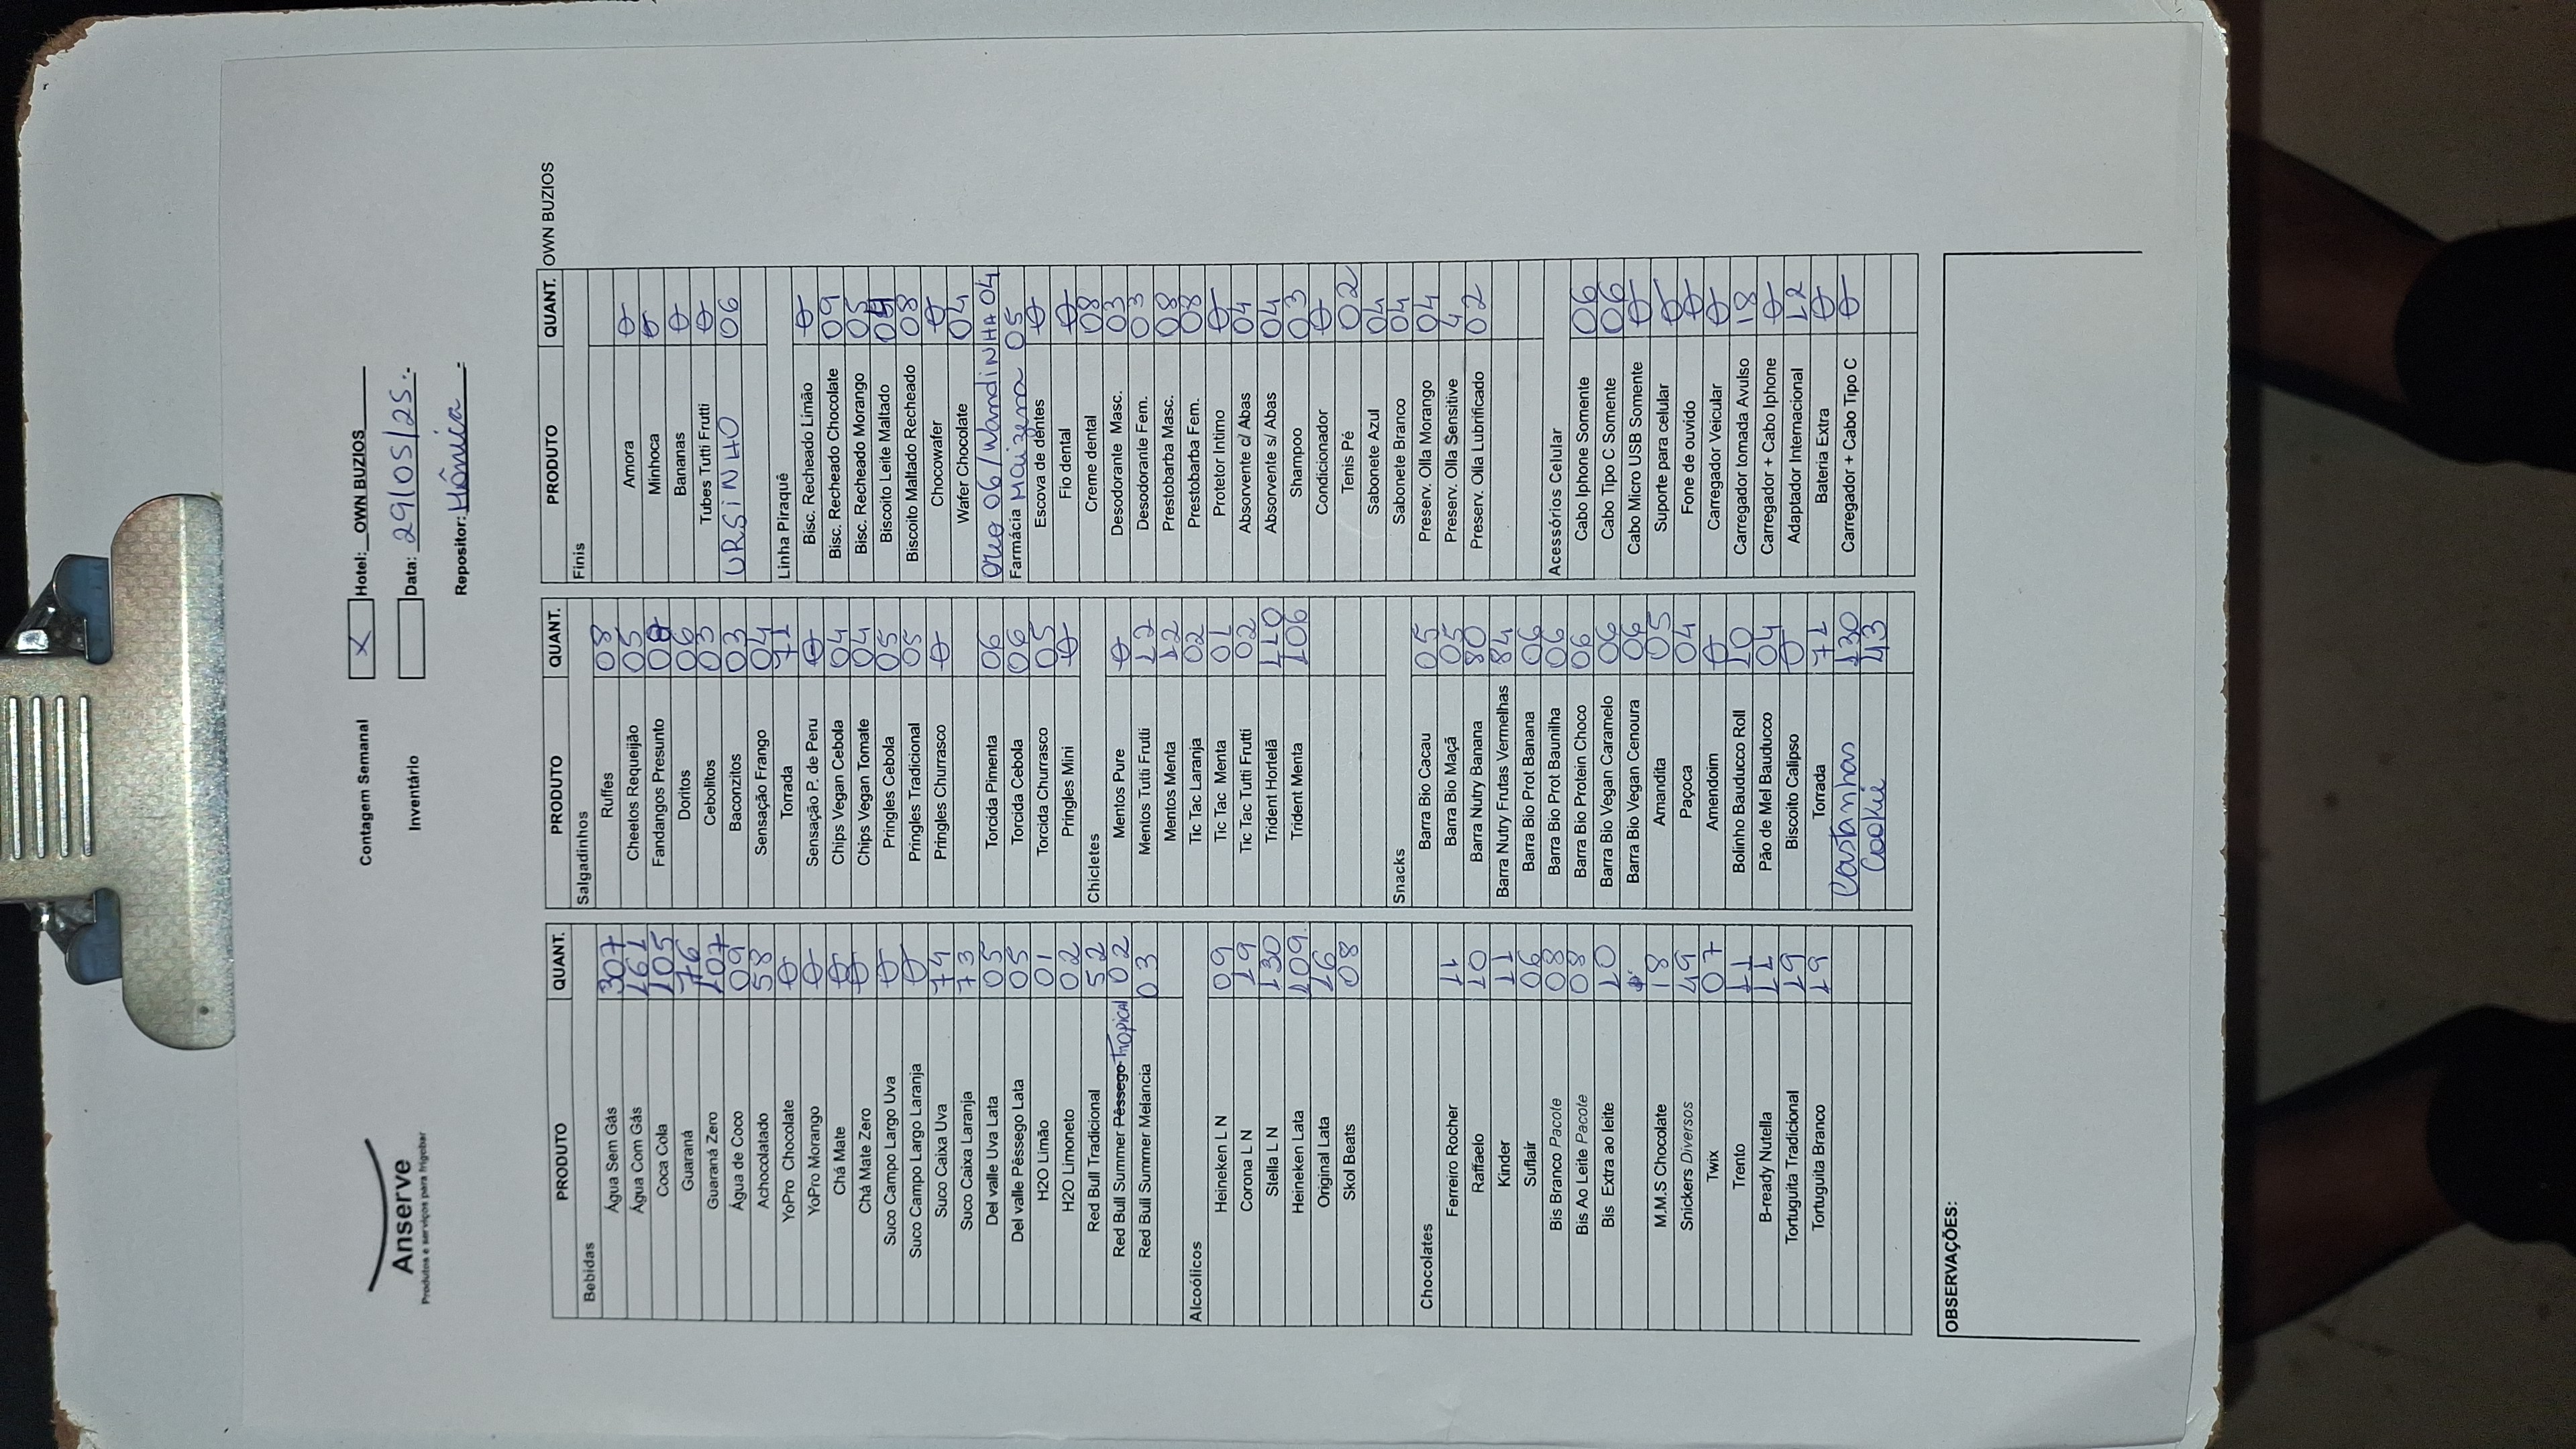 Anserve
Produtos e serviços para frigobar
Contagem Semanal X Hotel: OWN BUZIOS
Inventário Data: 29/05/25
Repositor: Mônica
OWN BUZIOS
PRODUTO QUANT.
Bebidas
Água Sem Gás 307
Água Com Gás 161
Coca Cola 105
Guaraná 76
Guaraná Zero 107
Água de Coco 09
Achocolatado 58
YoPro Chocolate Ø
YoPro Morango Ø
Chá Mate Ø
Chá Mate Zero Ø
Suco Campo Largo Uva Ø
Suco Campo Largo Laranja Ø
Suco Caixa Uva 74
Suco Caixa Laranja 73
Del valle Uva Lata 05
Del valle Pêssego Lata 05
H2O Limão 01
H2O Limoneto 02
Red Bull Tradicional 52
Red Bull Summer Pêssego Tropical 02
Red Bull Summer Melancia 03
Alcóolicos
Heineken L N 09
Corona L N 19
Stella L N 130
Heineken Lata 109
Original Lata 16
Skol Beats 08
Chocolates
Ferreiro Rocher 11
Raffaelo 10
Kinder 11
Suflair 06
Bis Branco Pacote 08
Bis Ao Leite Pacote 08
Bis Extra ao leite 10
Ø
M.M.S Chocolate 18
Snickers Diversos 49
Twix 07
Trento 11
B-ready Nutella 11
Tortuguita Tradicional 19
Tortuguita Branco 19
PRODUTO QUANT.
Salgadinhos
Ruffes 08
Cheetos Requeijão 05
Fandangos Presunto
Doritos 06
Cebolitos 03
Baconzitos 03
Sensação Frango 04
Torrada 71
Sensação P. de Peru Ø
Chips Vegan Cebola 04
Chips Vegan Tomate 04
Pringles Cebola 05
Pringles Tradicional 05
Pringles Churrasco Ø
Torcida Pimenta 06
Torcida Cebola 06
Torcida Churrasco 05
Pringles Mini Ø
Chicletes
Mentos Pure Ø
Mentos Tutti Frutti 12
Mentos Menta 12
Tic Tac Laranja 02
Tic Tac Menta 01
Tic Tac Tutti Frutti 02
Trident Hortelã 110
Trident Menta 106
Snacks
Barra Bio Cacau 05
Barra Bio Maçã 05
Barra Nutry Banana 80
Barra Nutry Frutas Vermelhas 84
Barra Bio Prot Banana 06
Barra Bio Prot Baunilha 06
Barra Bio Protein Choco 06
Barra Bio Vegan Caramelo 06
Barra Bio Vegan Cenoura 06
Amandita 05
Paçoca 04
Amendoim Ø
Bolinho Bauducco Roll 10
Pão de Mel Bauducco 04
Biscoito Calipso Ø
Torrada 71
Castanhas 130
Cookie 43
PRODUTO QUANT.
Finis
Amora Ø
Minhoca Ø
Bananas Ø
Tubes Tutti Frutti Ø
URSiNHO 06
Linha Piraquê
Bisc. Recheado Limão Ø
Bisc. Recheado Chocolate 09
Bisc. Recheado Morango 05
Biscoito Leite Maltado
Biscoito Maltado Recheado 08
Chocowafer Ø
Wafer Chocolate 04
06/WandiNHA 04
Farmácia Maizena 05
Escova de dentes Ø
Fio dental Ø
Creme dental 08
Desodorante Masc. 03
Desodorante Fem. 03
Prestobarba Masc. 08
Prestobarba Fem. 08
Protetor Intimo Ø
Absorvente c/ Abas 04
Absorvente s/ Abas 04
Shampoo 03
Condicionador Ø
Tenis Pé 02
Sabonete Azul 04
Sabonete Branco 04
Preserv. Olla Morango 04
Preserv. Olla Sensitive 4
Preserv. Olla Lubrificado 02
Acessórios Celular
Cabo Iphone Somente 06
Cabo Tipo C Somente 06
Cabo Micro USB Somente Ø
Suporte para celular Ø
Fone de ouvido Ø
Carregador Veicular Ø
Carregador tomada Avulso 18
Carregador + Cabo Iphone Ø
Adaptador Internacional 12
Bateria Extra Ø
Carregador + Cabo Tipo C Ø
OBSERVAÇÕES: